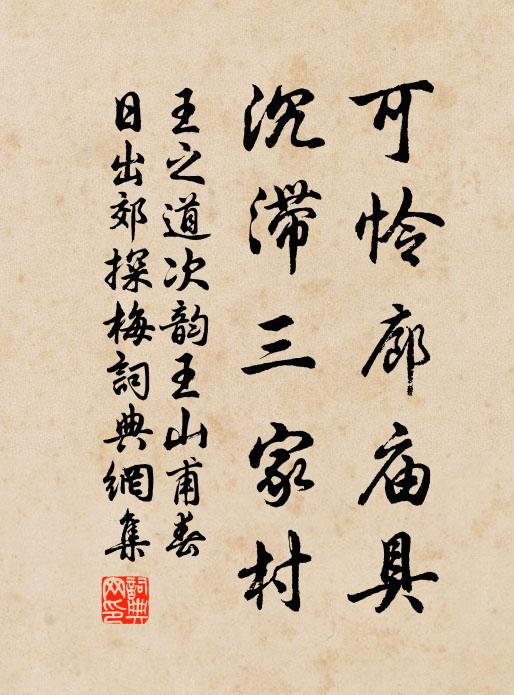 可怜廊庙具
沉滞三家村
王之道次韵王山甫春
日出郊探梅詞典網集
詞典
网印